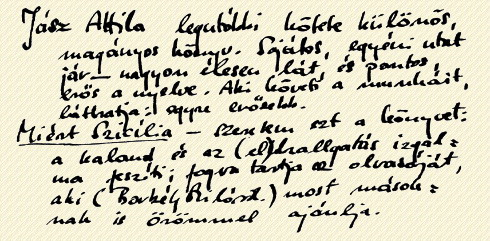 Jász Attila legutóbbi kötete különös,
magányos könyv. Sajátos, egyéni utat
jár — nagyon élesen lát, és pontos,
erős a nyelve. Aki követi a munkáit,
láthatja: egyre erősebb.
Miért Szicília — szerintem ezt a könyvet:
a kaland és az (el)hallgatás izgal=
ma feszíti; fogva tartja az olvasóját,
aki (Borbély Szilárd.) most mások=
nak is örömmel ajánlja.